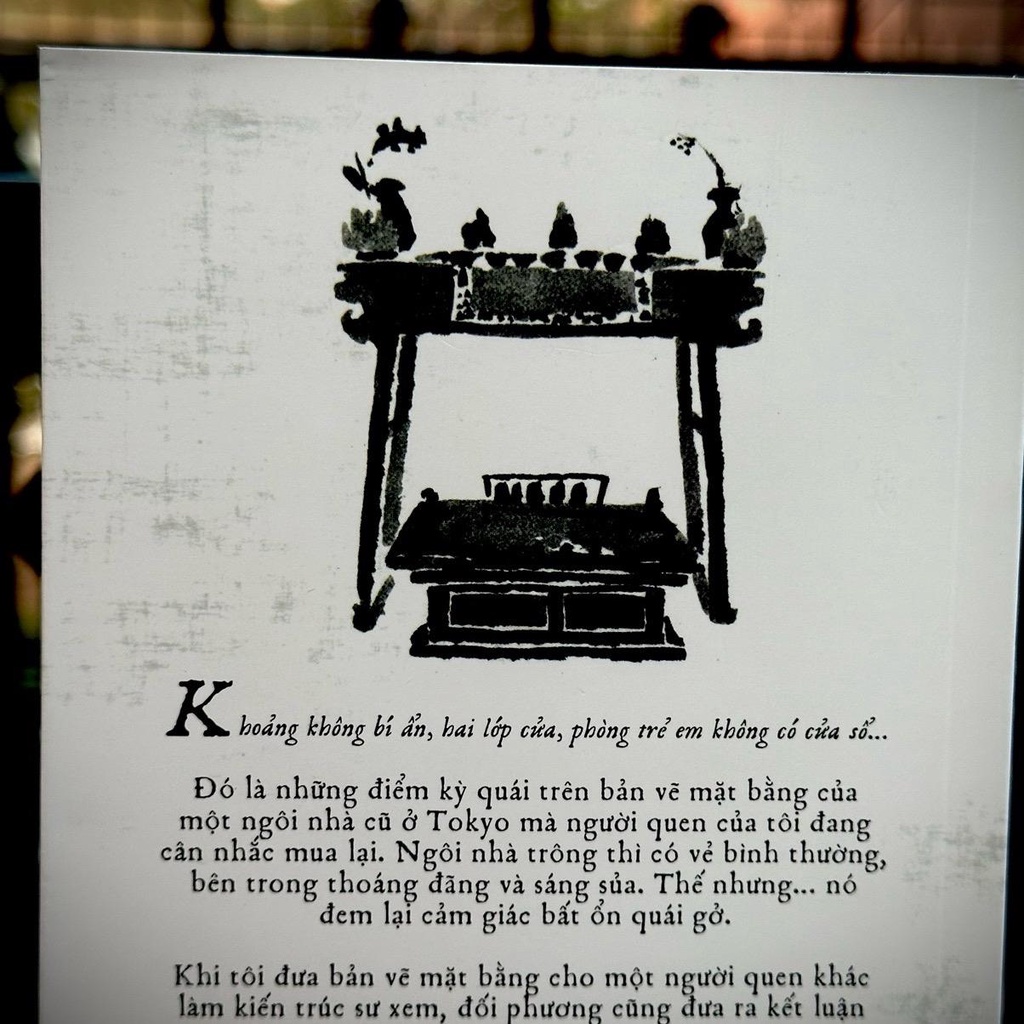 Khoảng không bí ẩn, hai lớp cửa, phòng trẻ em không có cửa sổ...
Đó là những điểm kỳ quái trên bản vẽ mặt bằng của
một ngôi nhà cũ ở Tokyo mà người quen của tôi đang
cân nhắc mua lại. Ngôi nhà trông thì có vẻ bình thường,
bên trong thoáng đãng và sáng sủa. Thế nhưng... nó
đem lại cảm giác bất ổn quái gở.
Khi tôi đưa bản vẽ mặt bằng cho một người quen khác
làm kiến trúc sư xem, đối phương cũng đưa ra kết luận